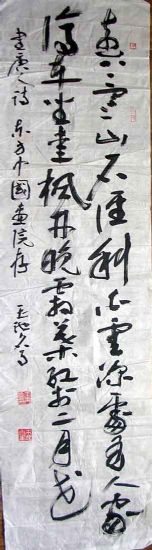 遠上寒山石徑斜白雲深處有人家
停車坐愛楓林晚霜葉紅於二月花
書唐人詩 東方中國畫院存